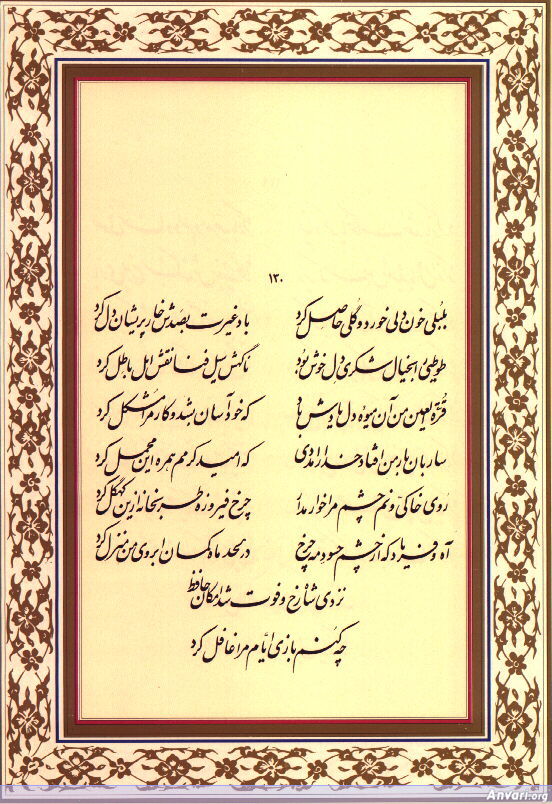 ۱۳۰
بلبلی خون دلی خورد و گلی حاصل کرد باد غیرت بصدش خار پریشان دل کرد
طوطیی را بخیال شکری دل خوش بود ناگهش سیل فنا نقش امل باطل کرد
قرة العین من آن میوه دل یادش باد که خود آسان بشد و کار مرا مشکل کرد
ساربان بار من افتاد خدا را مددی که امید کرمم همره این محمل کرد
روی خاکی و نم چشم مرا خوار مدار چرخ فیروزه طربخانه ازین کهگل کرد
آه و فریاد که از چشم حسود مه چرخ در لحد ماه کمان ابروی من منزل کرد
نزدی شاه رخ و فوت شد امکان حافظ
چه کنم بازی ایام مرا غافل کرد
Anvari.org